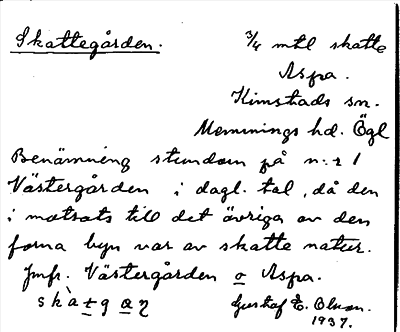 Skattegården. 3/4 mtl skatte
Aspa.
Kimstads sn.
Memmings hd. Ögl
Benämning stundom på n:r 1
Västergården i dagl. tal, då den
i motsats till det övriga av den
forna byn var av skatte natur.
Jmfr. Västergården o Aspa.
Gustaf E. Olsson.
1937.